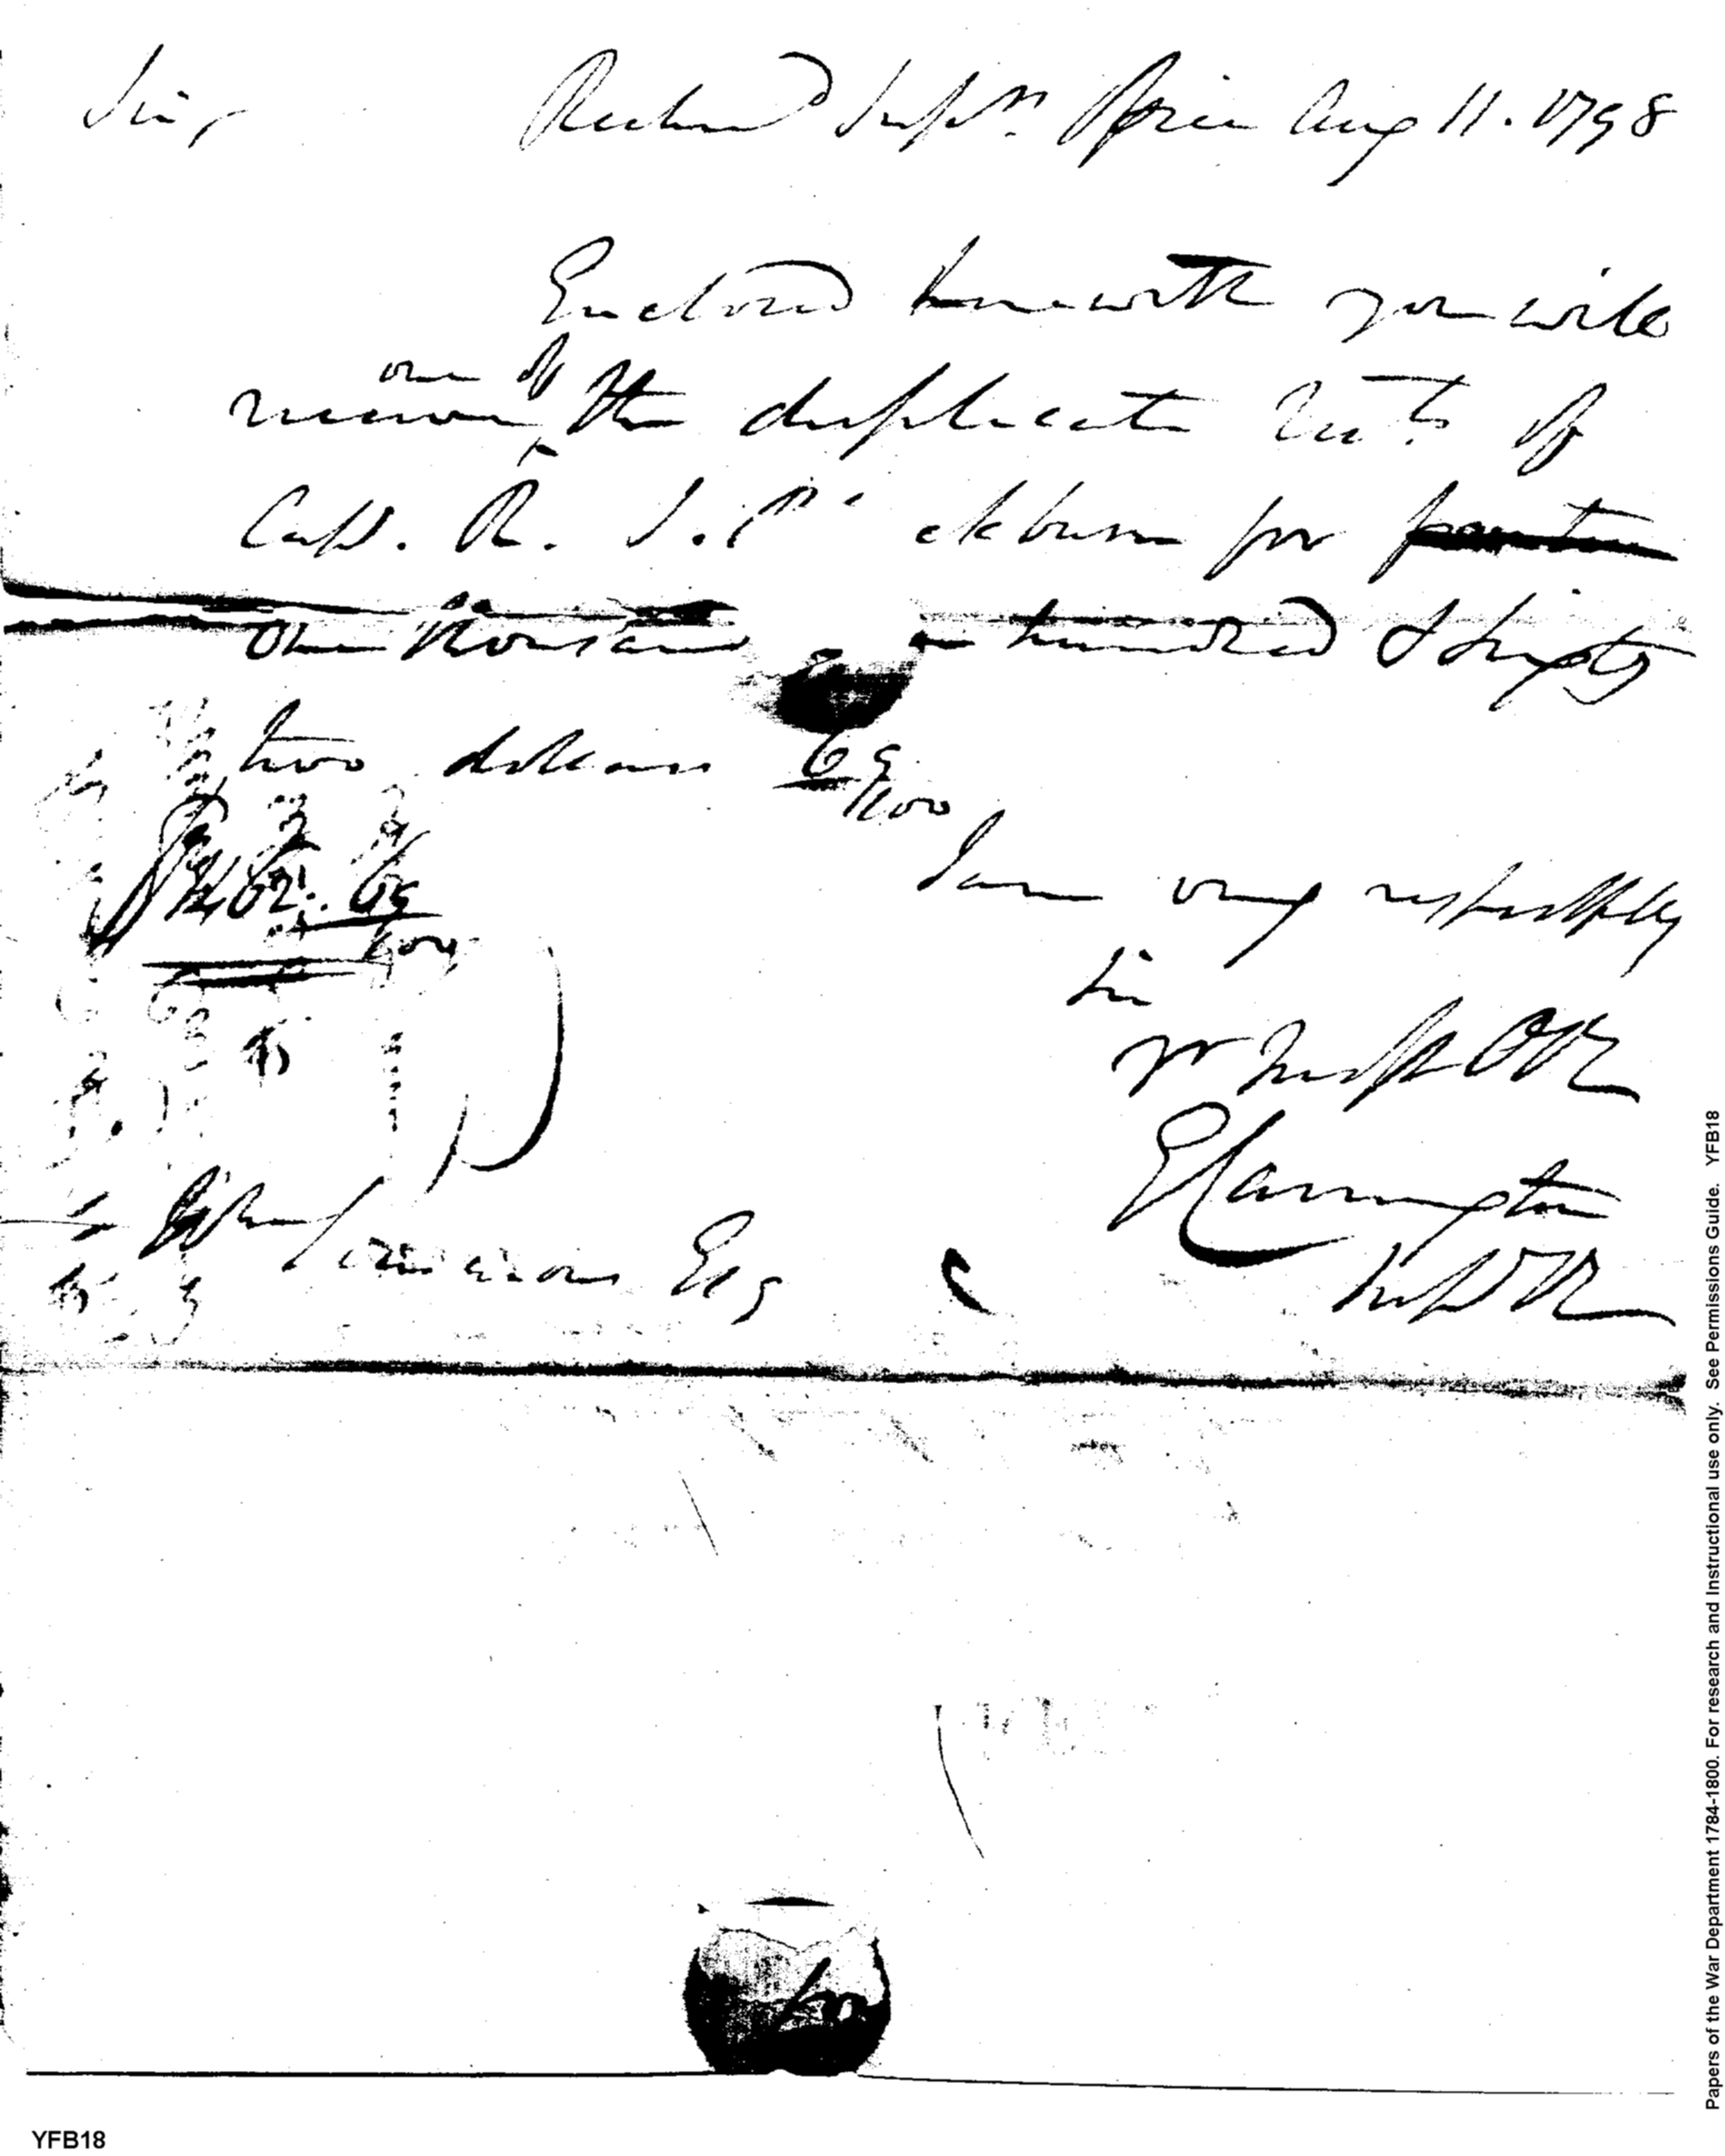 Sir, Richmd Suprs. Office Aug 11. 1798
Enclosed herewith you will
one of
receive the duplicate of
Capt. R. ckburn for
One thousand hundred & sixty
two dollars 65/100
I am very respectfully
$ 62. 65/100
Sir
Yr
E Carrington
Wm Simmons Esq
YFB18
Papers of the War Department 1784-1800. For research and Instructional use only. See Permissions Guide. YFB18